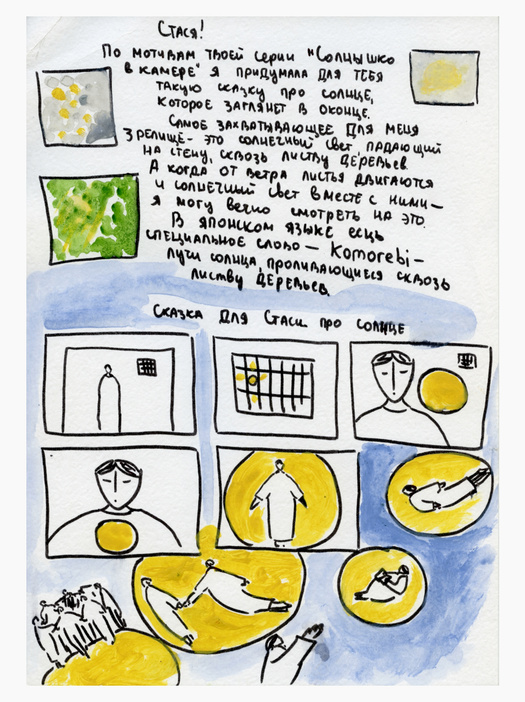 Стася!
По мотивам твоей серии "Солнышко
в камере" я придумала для тебя
такую сказку про солнце,
которое заглянет в оконце.
Самое захватывающее для меня
зрелище – это солнечный свет, падающий
на стену, сквозь листву деревьев
А когда от ветра листья двигаются
и солнечный свет вместе с ними –
я могу вечно смотреть на это.
В японском языке есть
специальное слово – Komorebi –
лучи солнца, проливающиеся сквозь
листву деревьев.
Сказка для Стаси про солнце